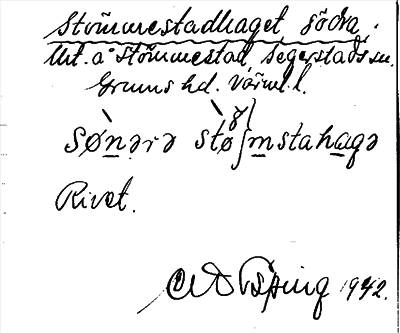 Strömmestadhaget, södra,
Utt. å Strömmestad, Segerstads sn.
Grums hd. Värml. l.
sønərə stø mstahagə
Rivet.
1942.